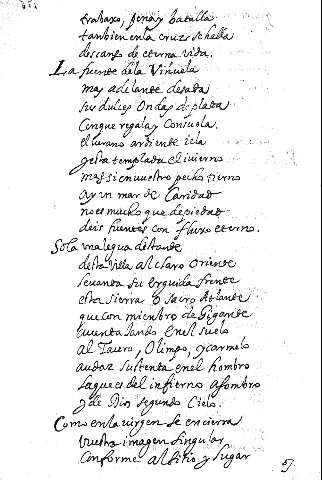 trabaxo, pena y batalla
tambien en la cruz se halla
descanso de eterna vida.
La fuente de la Viñuela
mas adelante desata
sus dulces ondas de plata
Conque regala y Consuela.
el verano ardiente iela
y esta templada el iuierno
mas si en vuestro pecho tierno
ay un mar de Caridad
no es mucho que de piedad
deis fuentes con fluxo eterno.
Sola una legua distante
desta Villa al claro Oriente
leuanta su erguida frente
esta sierra o sacro Atlante
que con miembro de Gigante
en el suelo
al Tauro, Olimpo, y carmelo
audaz sustenta en el hombro
la que es del infierno asombro
y de Dios segundo Cielo.
Como en la virgen se encierra
vuestra imagen singular
Conforme al sitio y lugar